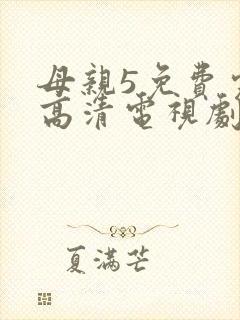 母親5免費
高清電視劇
夏滿芒